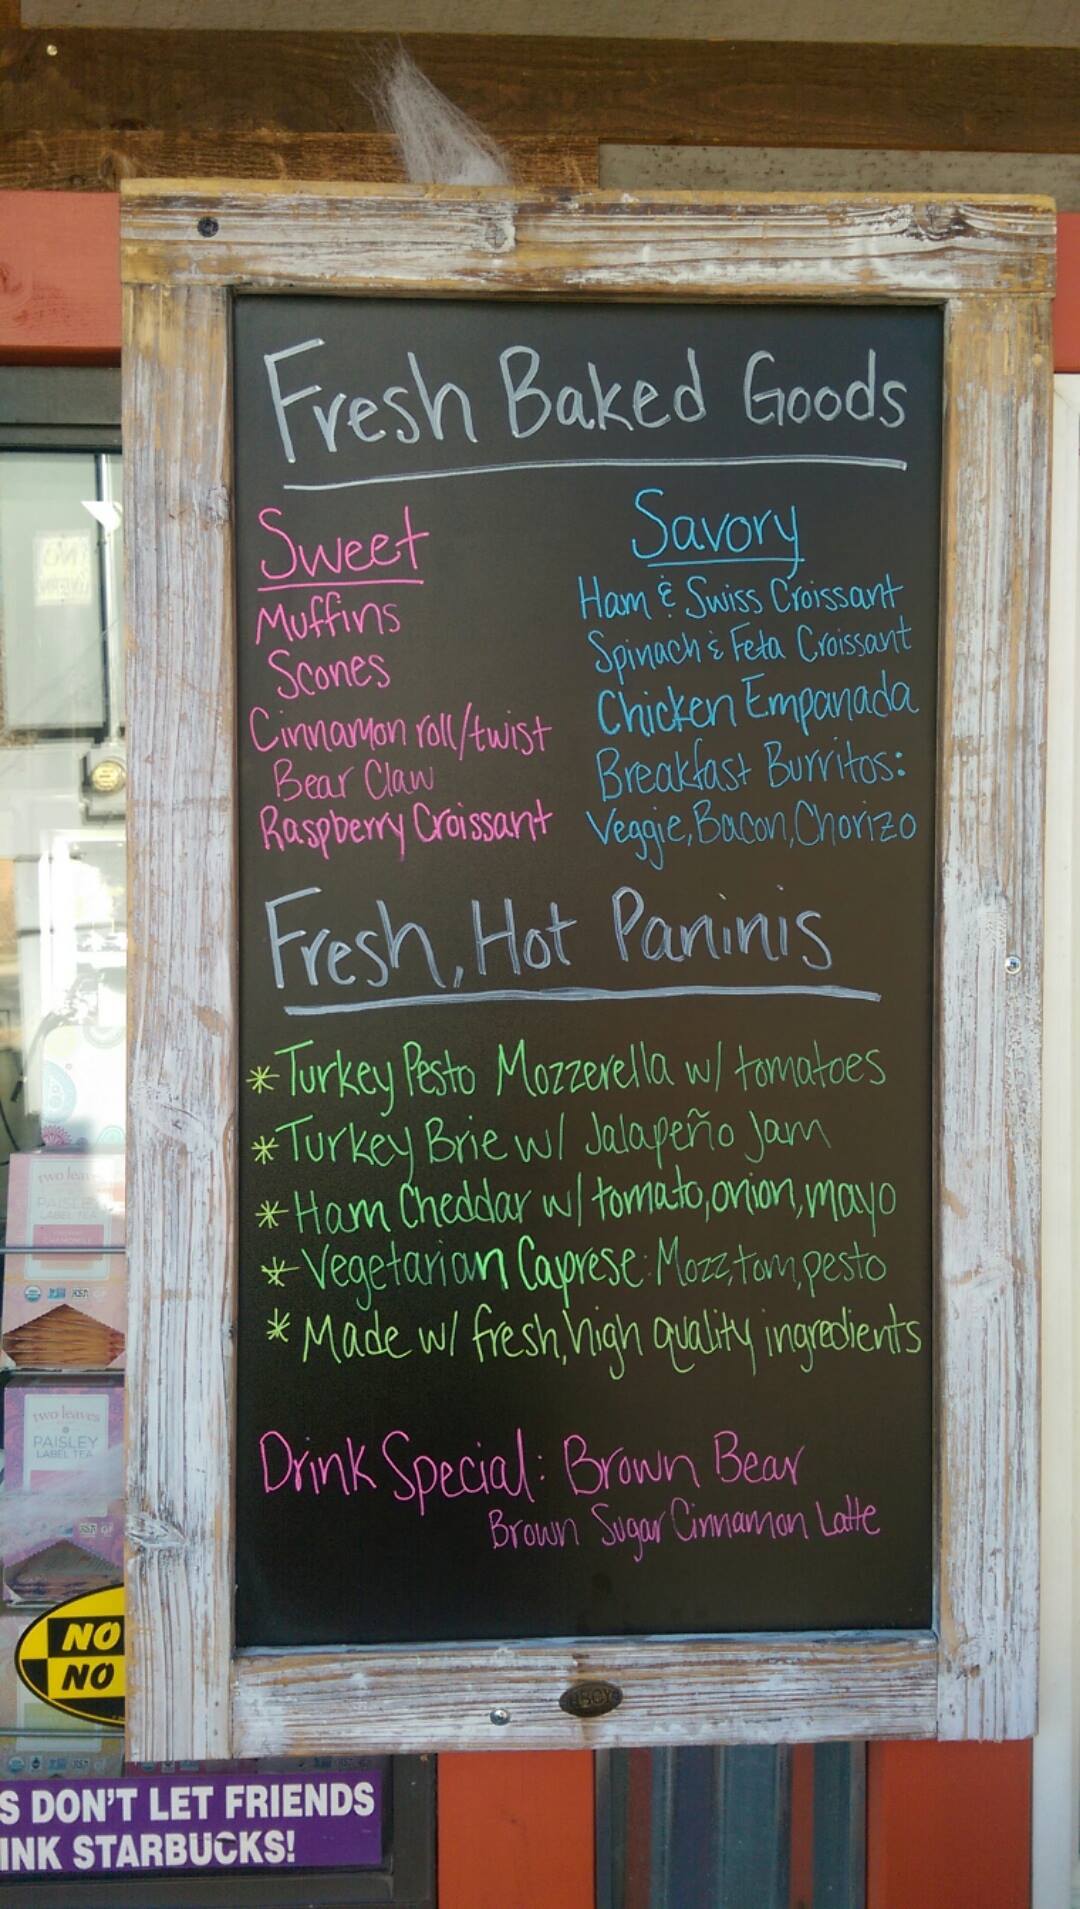 Fresh Baked Goods
Sweet
Muffins
Scones
Cinnamon roll/twist
Bear Claw
Raspberry Croissant
Savory
Ham & Swiss Croissant
Spinach & Feta Croissant
Chicken Empanada
Breakfast Burritos:
Veggie, Bacon, Chorizo
Fresh, Hot Paninis
* Turkey Pesto Mozzerella w/ tomatoes
* Turkey Brie w/ Jalapeño Jam
* Ham Cheddar w/ tomato, onion, mayo
* Vegetarian Caprese: Mozz, tom, pesto
* Made w/ fresh, high quality ingredients
Drink Special: Brown Bear
Brown Sugar Cinnamon Latte
two leaves
PAISLEY
LABEL TEA
two leaves
PAISLEY
LABEL TEA
NO
NO
S DON'T LET FRIENDS
INK STARBUCKS!